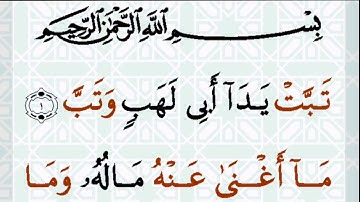 بِسْمِ اللَّهِ الرَّحْمَٰنِ الرَّحِيمِ
تَبَّتْ يَدَآ أَبِى لَهَبٍ وَتَبَّ ١
مَآ أَغْنَىٰ عَنْهُ مَالُهُۥ وَمَا